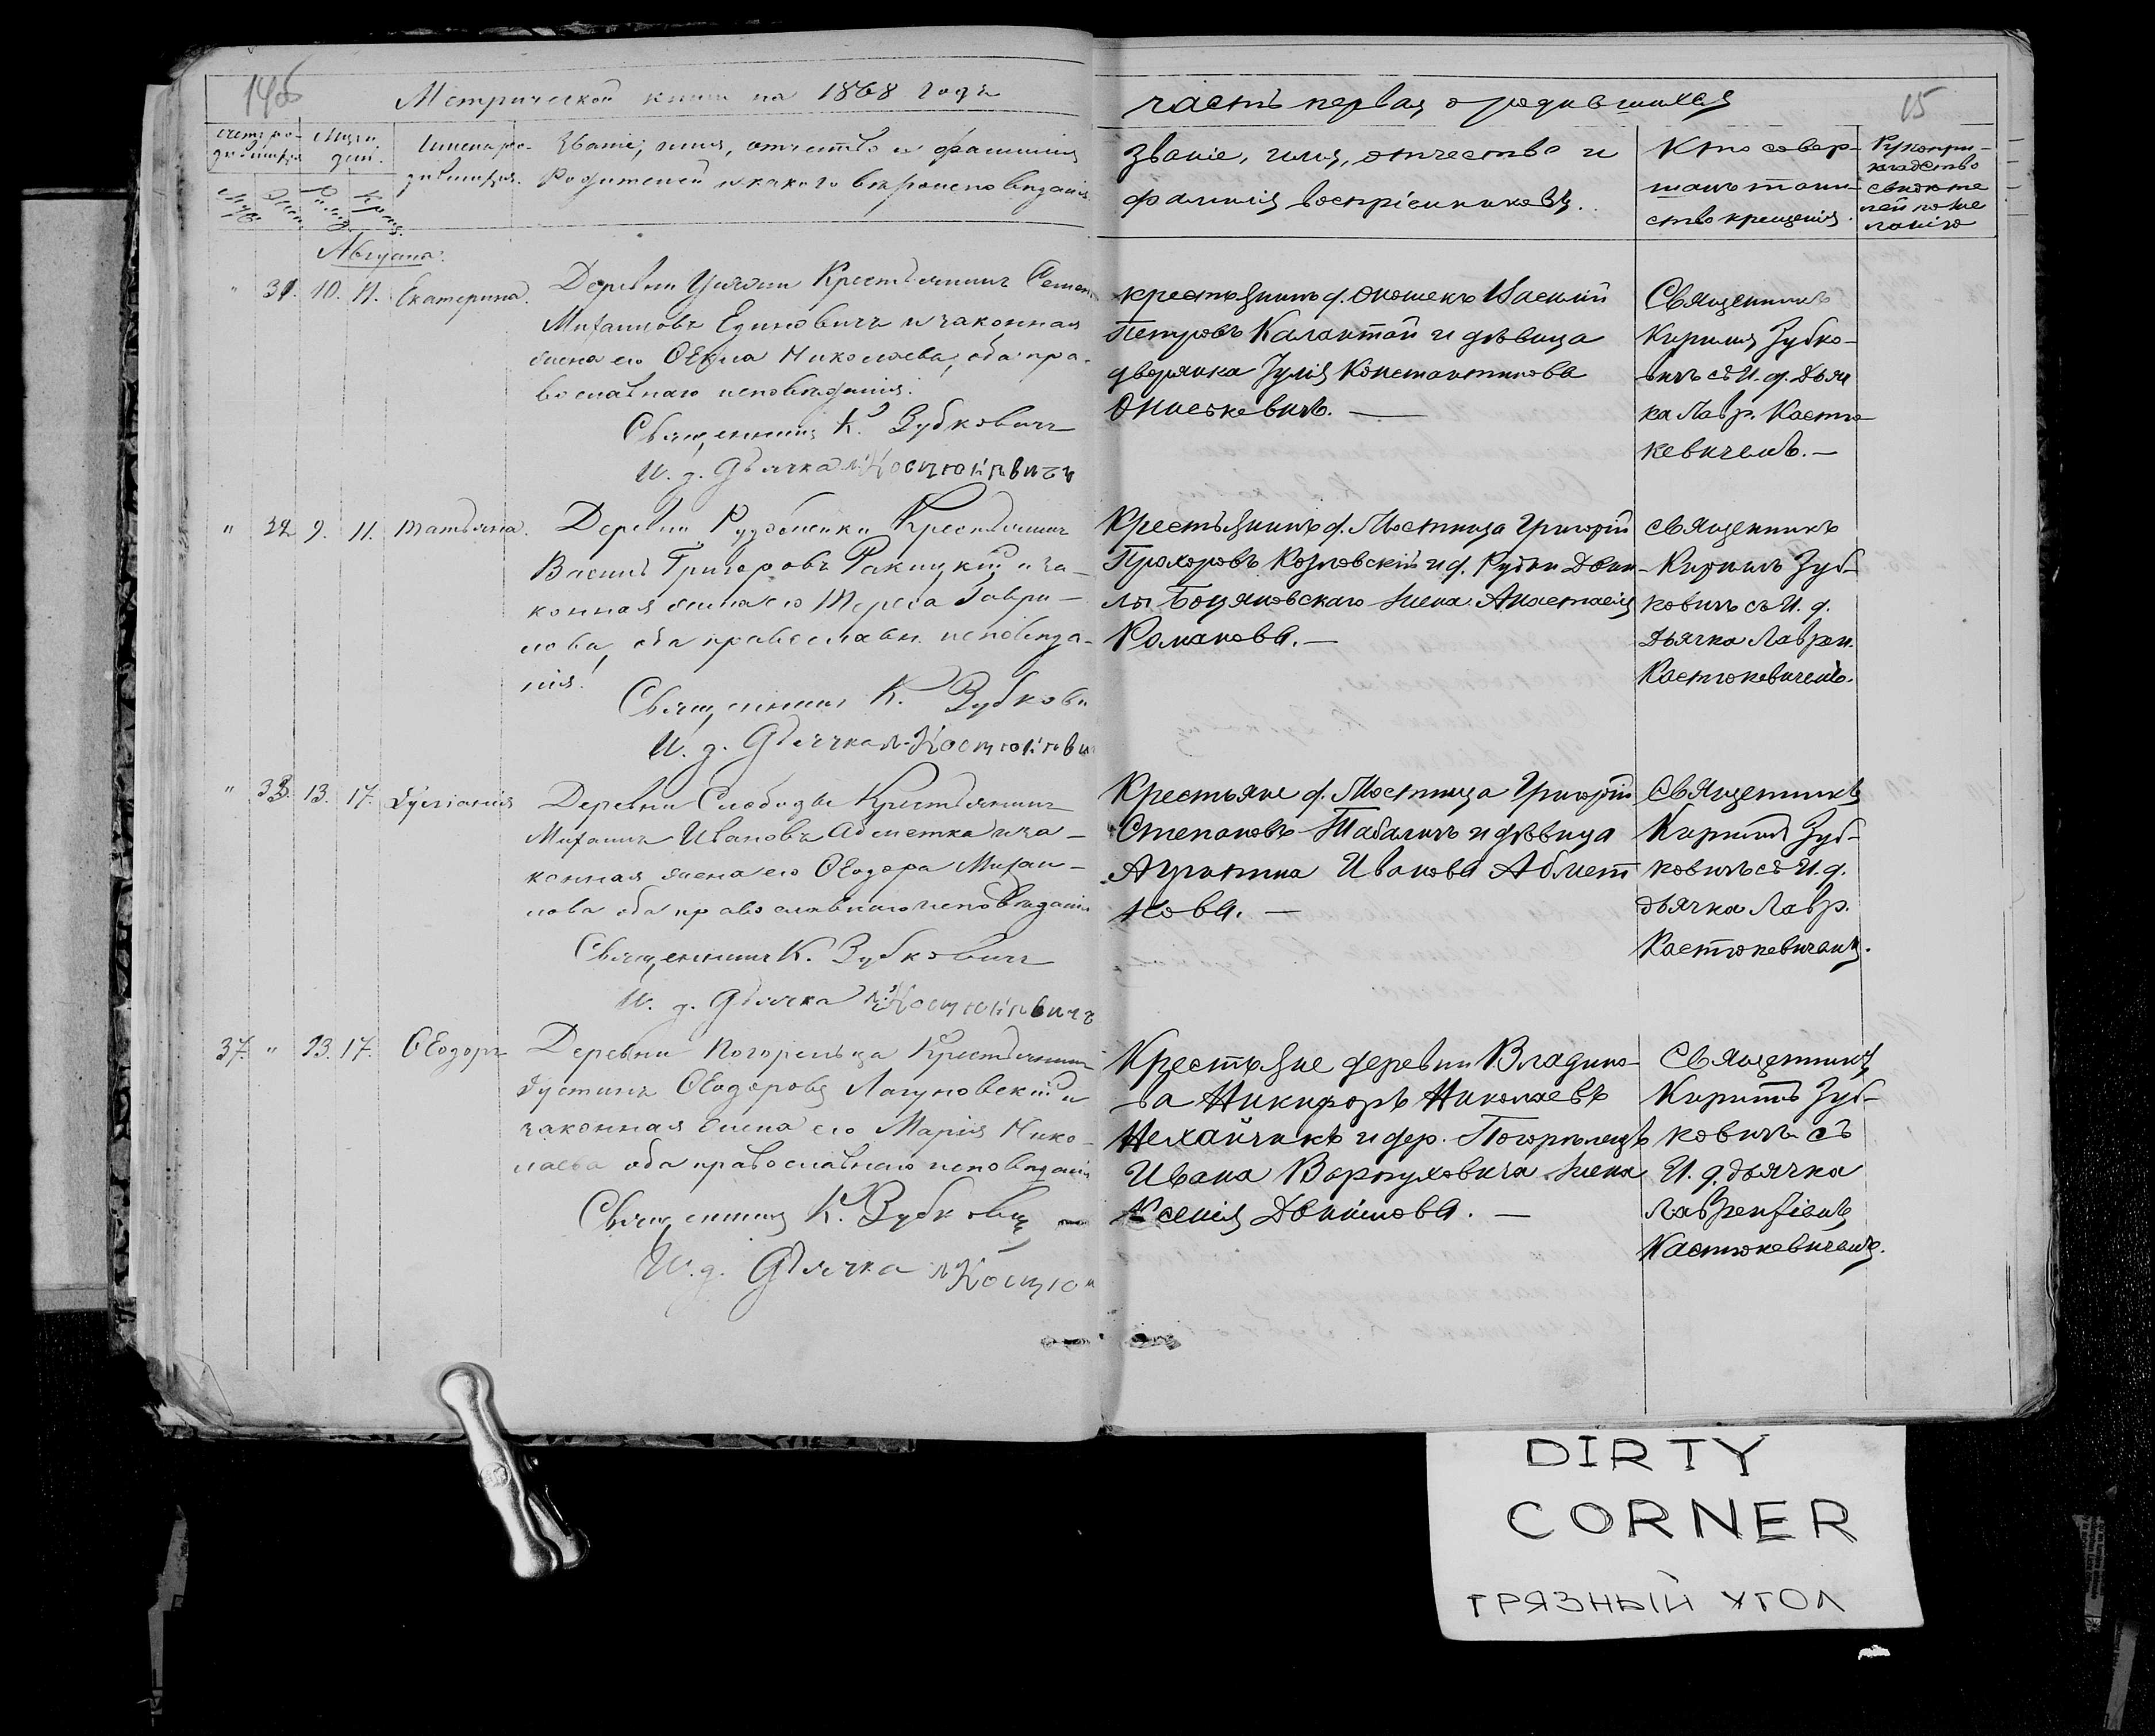 Метрической книги на 1868 годъ
часть первая о родившихся
15
Счетъ ро-
дившихся
Муж.
Жен.
Мѣсяц и
дни.
Рожд.
Крещ.
Имена ро-
дившихся.
Званіе, имя, отчество и фамилія
Родителей и какого вѣроисповѣданія
Званіе, имя, отчество и
фамилія воспріемниковъ.
Кто совер-
шалъ таин-
ство крещенія.
Рукопри-
кладство
свидѣте
лей по же
ланію
Августа.
" 31. 10. 11. Екатерина.
Деревни Крестьянинъ Семен
Михаиловъ Единовичъ и законная
жена его Ѳекла Николаева, оба пра-
вославнаго исповѣданія.
Священникъ К. Зубковичъ
И. д. Дьячка Л. Костюкевичъ
Крестьянинъ д. Василій
Петровъ Калантай и дѣвица
дворянка Іулія Константинова
Онискевичъ. —
Священникъ
Кириллъ Зубко-
вичъ съ И. д. Дьяч
ка Лавр. Костю
кевичемъ. —
" 32. 9. 11. Татьяна.
Деревни Рудобелки Крестьянинъ
Василь Григоровъ Ракицкій и за-
конная жена его Тереса Гаври-
лова, оба православн. исповѣда-
нія.
Священникъ К. Зубкови
И. д. Дьячка Л. Костюкеви
Крестьянинъ д. Мостища Григорій
Прохоровъ Козловскій и д. Рудни Дани-
ла Боцяновскаго жена Анастасія
Романова. —
Священникъ
Кириллъ Зуб-
ковичъ съ И. д.
Дьячка Лаврен.
Костюкевичемъ.
" 33. 13. 17. Іуліанія
Деревни Слободы Крестьянинъ
Михаилъ Ивановъ Абметка и за-
конная жена его Ѳеодора Михаи-
лова оба православнаго исповѣданія
Священникъ К. Зубковичъ
И. д. Дьячка Л. Костюкевичъ
Крестьяне д. Мостища Григорій
Степановъ Табаличъ и дѣвица
Агрипина Иванова Абмет
кова. —
Священникъ
Кириллъ Зуб-
ковичъ съ И. д.
дьячка Лавр.
Костюкевичемъ.
37. " 13. 17. Ѳеодоръ
Деревни Погорельца Крестьянинъ
Іустинъ Ѳеодоровъ Лагуновскій и
законная жена его Марія Нико-
лаева оба православнаго исповѣданія
Священникъ К. Зубковичъ
И. д. Дьячка Л. Костюк
Крестьяне деревни Владико-
ва Никифоръ Николаевъ
Нехайчикъ и дер. Погорѣлецъ
Ивана Варпуховича жена
Ксенія Данилова. —
Священникъ
Кириллъ Зуб-
ковичъ съ
И. д. дьячка
Лаврентіемъ
Костюкевичемъ.
DIRTY
CORNER
ГРЯЗНЫЙ УГОЛ